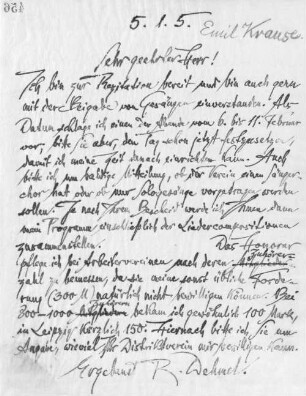 456
5. 1. 5.
Emil Krause
Sehr geehrter Herr!
Ich bin zur Recitation bereit und bin auch gern
mit der Beigabe von Gesängen einverstanden. Als
Datum schlage ich einen der Abende vom 6. bis 11. Februar
vor, bitte Sie aber, den Tag schon jetzt festzusetzen,
damit ich meine Zeit danach einrichten kann. Auch
bitte ich um baldige Mitteilung, ob der Verein einen Sänger-
chor hat oder ob nur Sologesänge vorgetragen werden
sollen. Je nach Ihrem Bescheid werde ich Ihnen dann
mein Programm einschließlich der Liedercompositionen
zusammenstellen. Das Honorar
pflege ich bei Arbeitervereinen nach deren Zuhörer-
zahl zu bemessen, da sie meine sonst übliche Forde-
rung (300 M) natürlich nicht bewilligen können. Bei
800–1000 Zuhörern bekam ich gewöhnlich 100 Mark,
in Leipzig kürzlich 150. Hiernach bitte ich Sie um
Angabe, wieviel Ihr Distriktsverein mir bewilligen kann.
Ergebenst R. Dehmel.